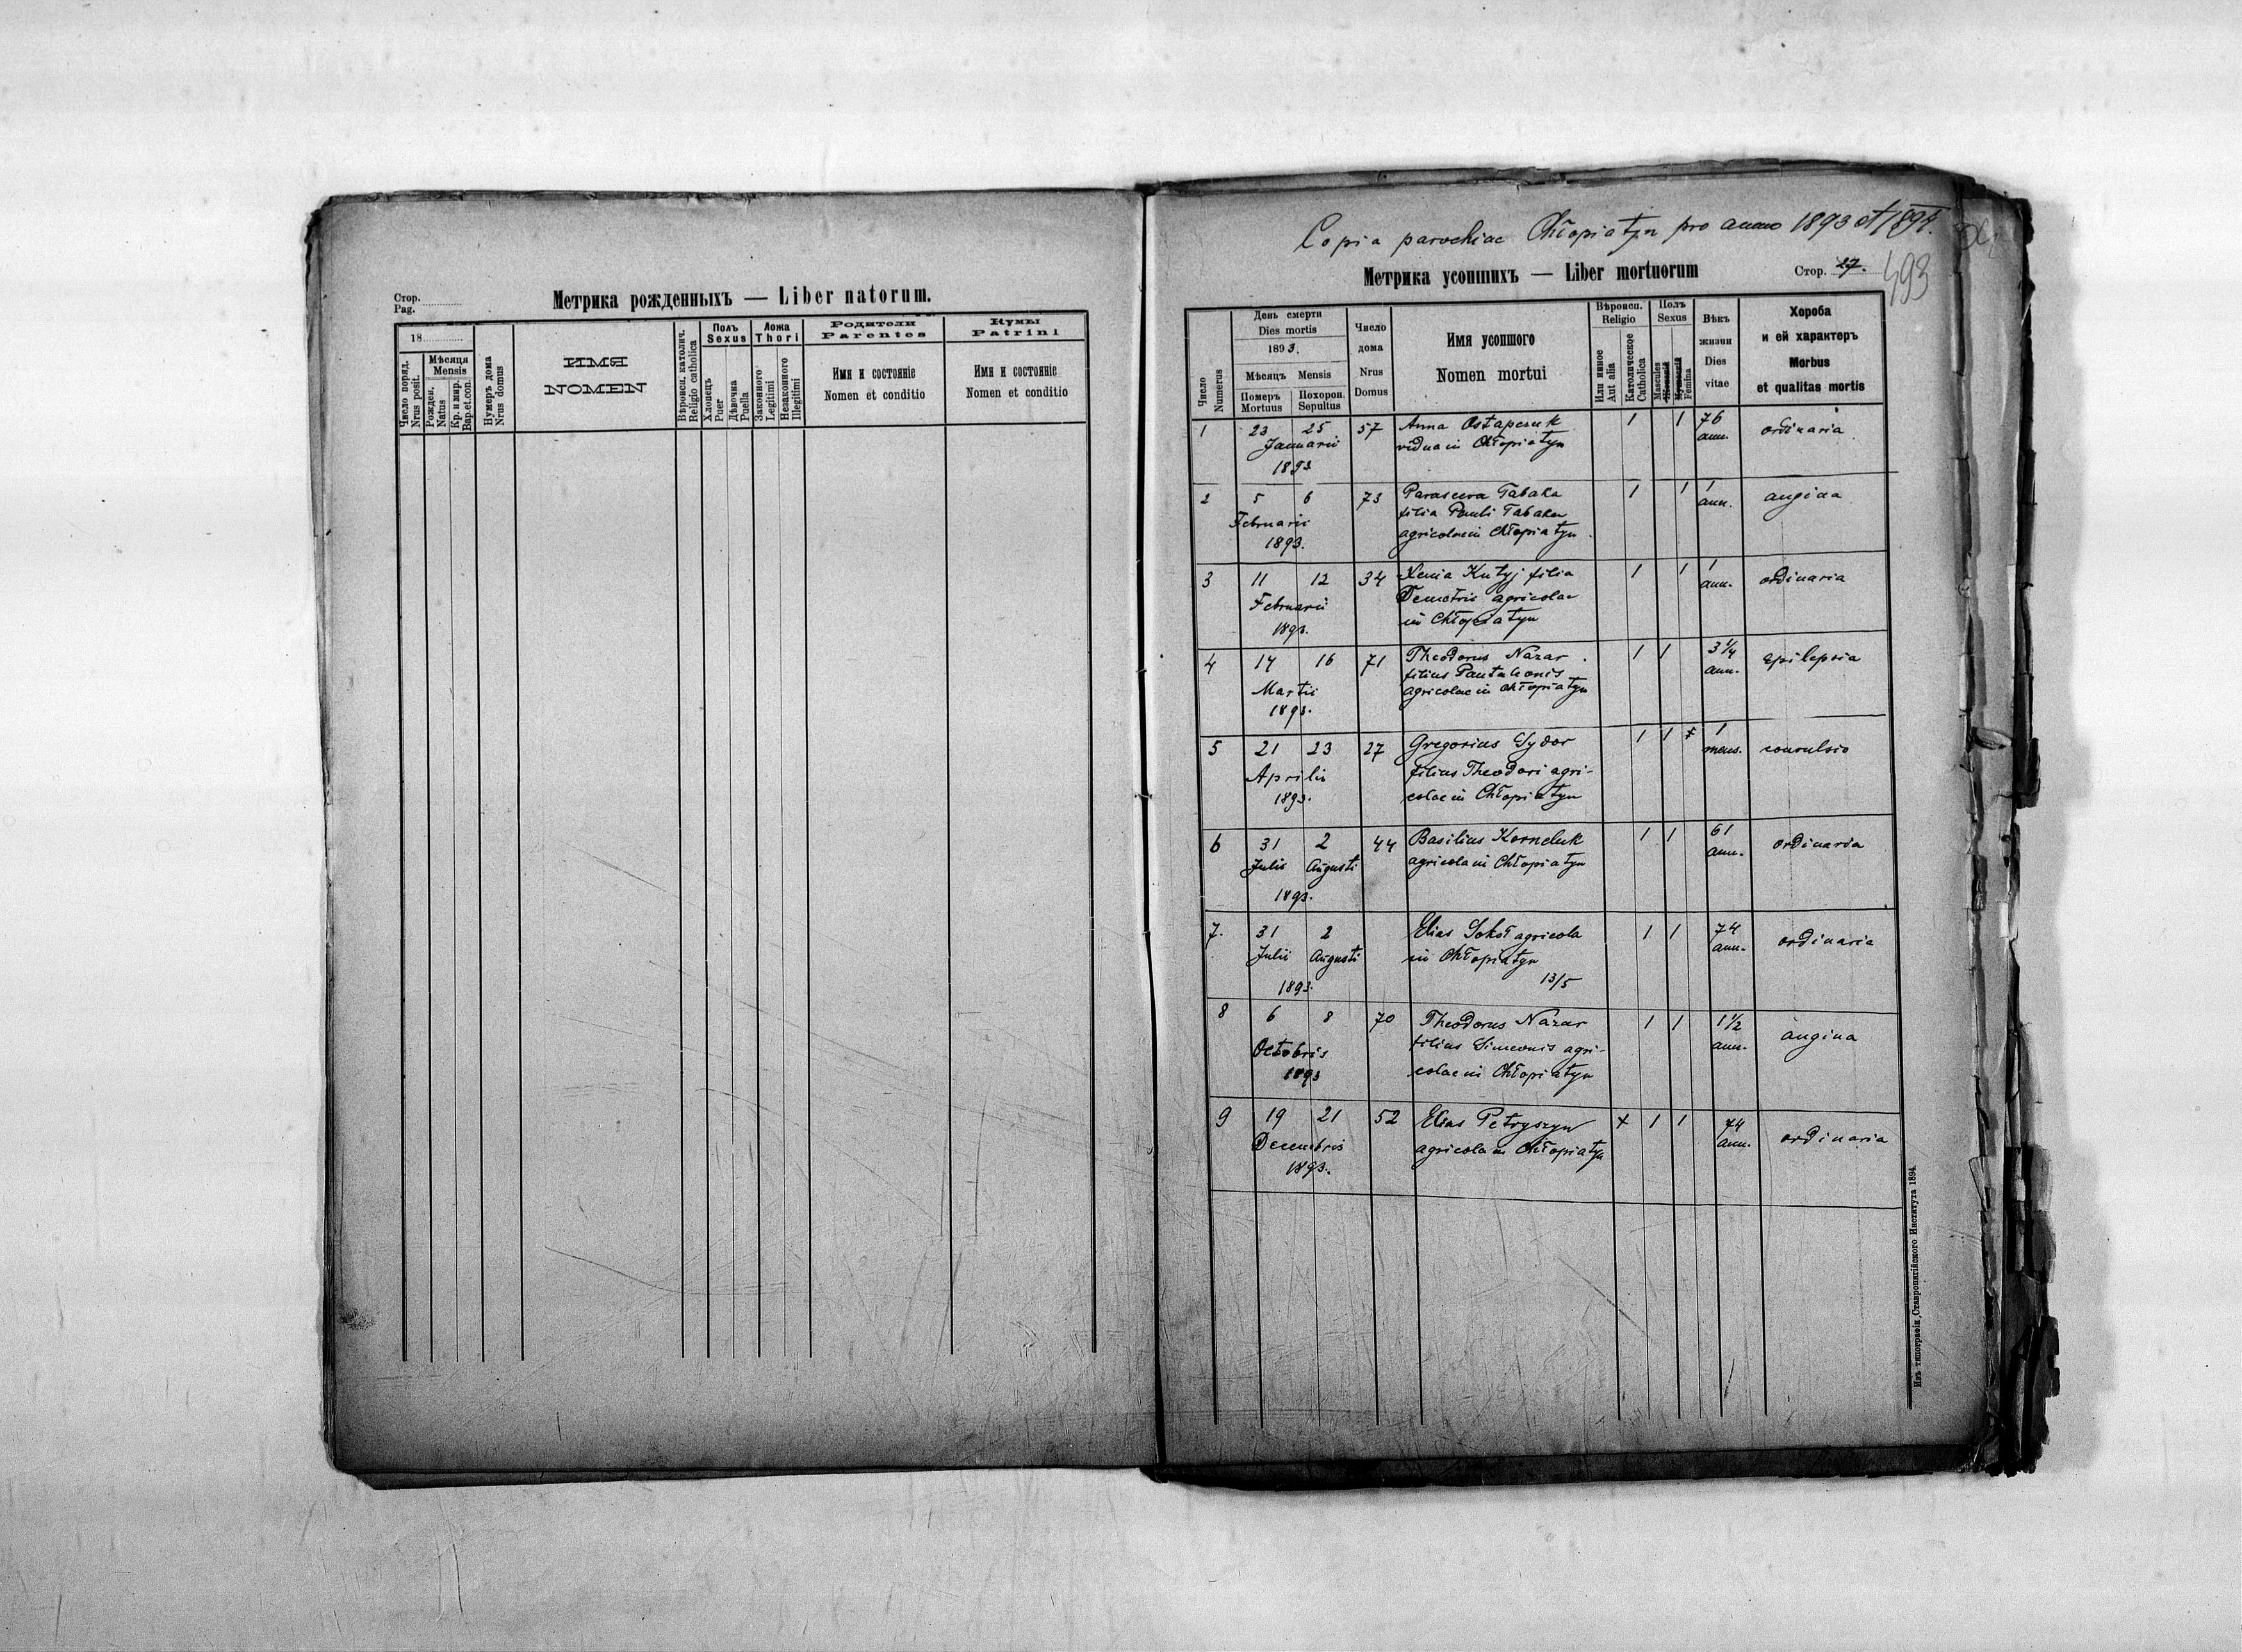 Стор.
Pag.
Метрика рожденныхъ — Liber natorum.
18
Число поряд.
Nrus posit.
Мѣсяця
Mensis
Рожден.
Natus
Кр. и мир.
Bap.et.con.
Нумеръ дома
Nrus domus
ИМЯ
NOMEN
Вѣроисп. католич.
Religio catholica
Полъ
Sexus
Хлопецъ
Puer
Дѣвочка
Puella
Ложа
Thori
Законного
Legitimi
Незаконного
Illegitimi
Родители
Parentes
Имя и состояніе
Nomen et conditio
Кумы
Patrini
Имя и состояніе
Nomen et conditio
Copia parochiae Chłopiatyn pro anno 1893 et 1894.
493
Метрика усопшихъ — Liber mortuorum
Стор. 27.
Число
Numerus
День смерти
Dies mortis
1893.
Мѣсяцъ Mensis
Померъ
Mortuus
Похорон.
Sepultus
Число
дома
Nrus
Domus
Имя усопшого
Nomen mortui
Вѣроисп.
Religio
Или иное
Aut alia
Католическое
Catholica
Полъ
Sexus
Masculea
Femina
Вѣкъ
жизни
Dies
vitae
Хороба
и ей характеръ
Morbus
et qualitas mortis
1 23 25 57 Anna Ostapczuk 1 1 76 ordinaria
Januarii vidua in Chłopiatyn ann.
1893
2 5 6 73 Parasceva Tabaka 1 1 1 angina
Februarii filia Pauli Tabaka ann.
1893. agricolae in Chłopiatyn
3 11 12 34 Xenia Kutyj filia 1 1 1 ordinaria
Februarii Demetrii agricolae ann.
1893. in Chłopiatyn
4 14 16 71 Theodorus Nazar 1 1 3 1/4 epilepsia
Martii filius Pantaleonis ann.
1893. agricolae in Chłopiatyn
5 21 23 27 Gregorius Sydor 1 1 1 convulsio
Aprilis filius Theodori agri- mens.
1893. colae in Chłopiatyn
6 31 2 44 Basilius Korneluk 1 1 61 ordinaria
Julii Augusti agricola in Chłopiatyn ann.
1893.
7. 31 2 Elias Sokoł agricola 1 1 74 ordinaria
Julii Augusti in Chłopiatyn ann.
1893. 13/5
8 6 8 70 Theodorus Nazar 1 1 1 1/2 angina
Octobris filius Simeonis agri- ann.
1893 colae in Chłopiatyn
9 19 21 52 Elias Petryszyn + 1 1 74 ordinaria
Decembris agricola in Chłopiatyn ann.
1893.
Изъ типографіи Ставропигійского Института 1894.